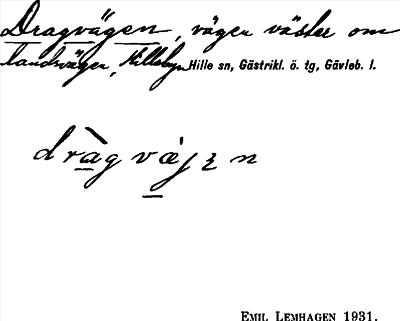 Dragvägen, vägen väster om
landsvägen, Hilleby Hille sn, Gästrikl. ö. tg, Gävleb. l.
dràgvæ̀jɛn
EMIL LEMHAGEN 1931.